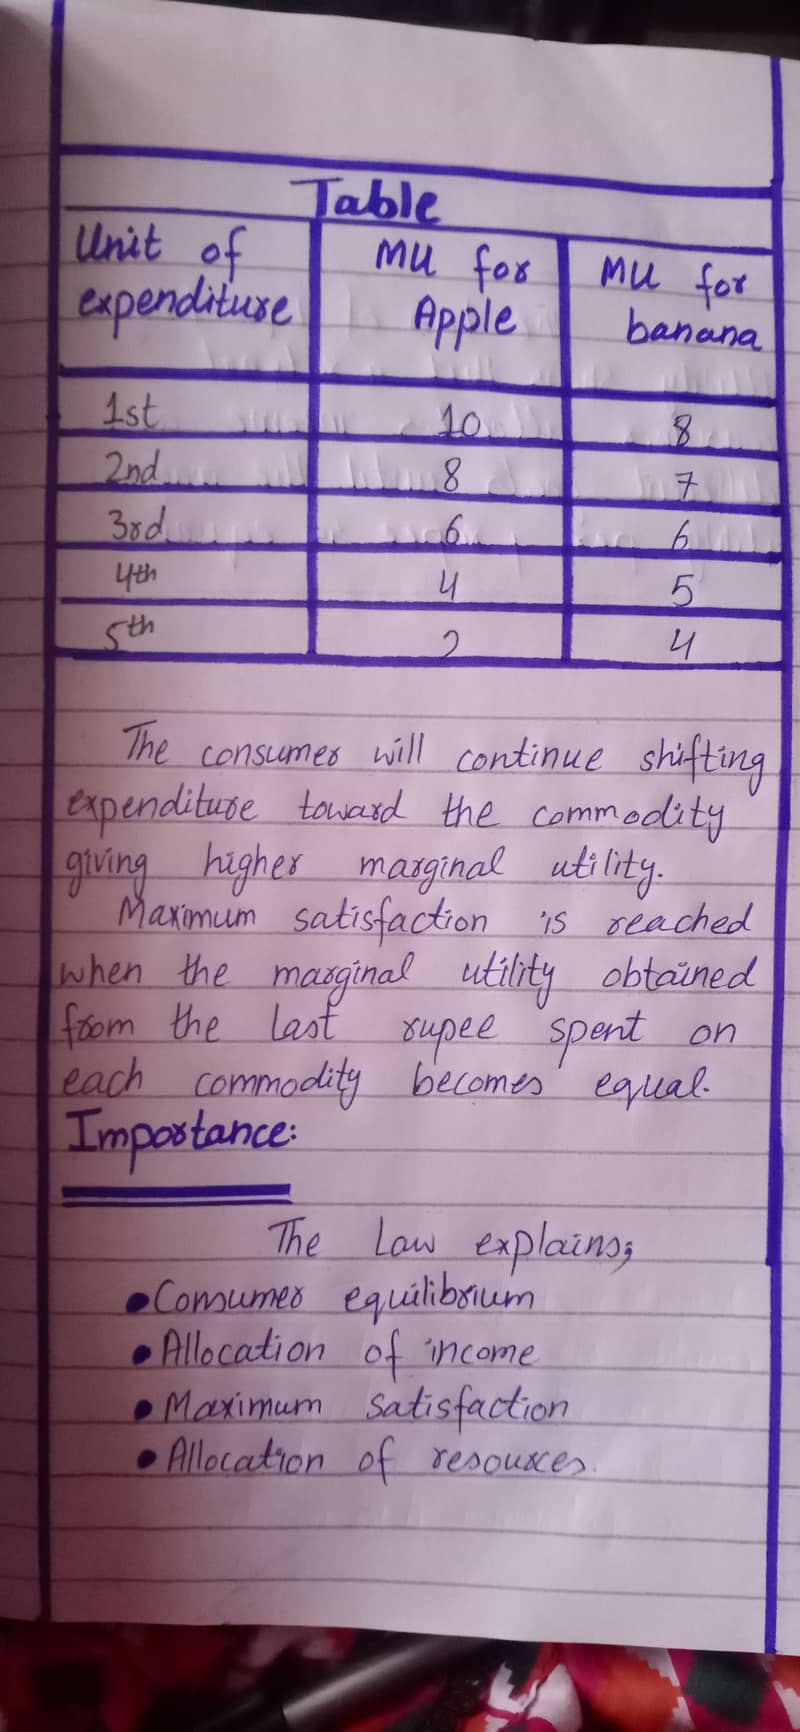 Table
Unit of expenditure | MU for Apple | MU for banana
1st | 10 | 8
2nd | 8 | 7
3rd | 6 | 6
4th | 4 | 5
5th | 2 | 4
The consumer will continue shifting
expenditure toward the commodity
giving higher marginal utility.
Maximum satisfaction is reached
when the marginal utility obtained
from the last rupee spent on
each commodity becomes equal.
Importance:
The Law explains;
• Consumer equilibrium
• Allocation of income
• Maximum satisfaction
• Allocation of resources.